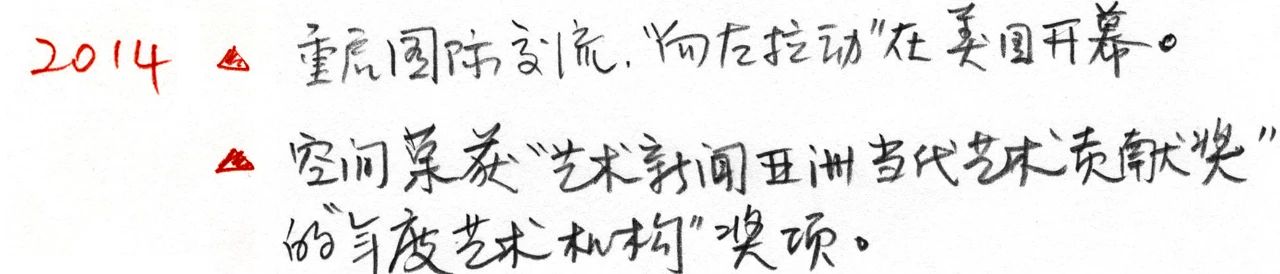 2014 ▲ 重启国际交流,“向左拉动”在美国开幕。
▲ 空间荣获“艺术新闻亚洲当代艺术贡献奖”
的“年度艺术机构”奖项。